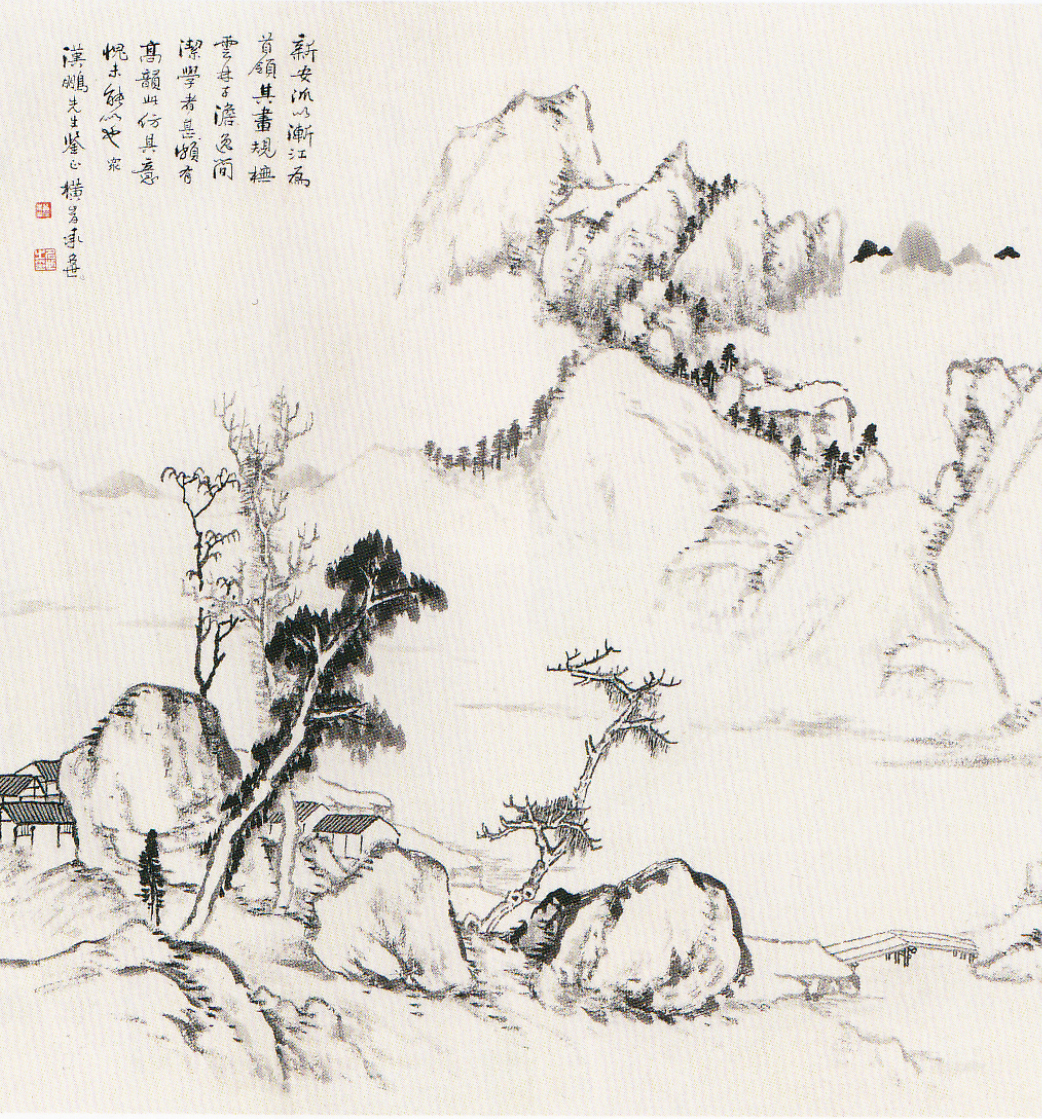 新安派以漸江為
首領其畫規橅
雲林子澹逸簡
潔學者甚頗有
高韻此仿其意
愧未能似也
漢鵬先生鑒正